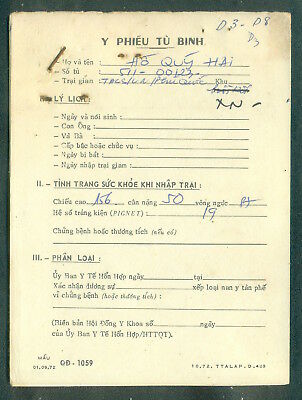 D3 - D8
D3
Y PHIẾU TÙ BINH
— Họ và tên HỒ QUÝ HAI
— Số tù 511-00123
— Trại giam Khu
XN -
I.— LÝ LỊCH :
— Ngày và nơi sinh :
— Con Ông :
— Và Bà :
— Cấp bực hoặc chức vụ :
— Ngày bị bắt :
— Ngày nhập trại giam :
II.— TÌNH TRẠNG SỨC KHỎE KHI NHẬP TRẠI :
Chiều cao 156 cân nặng 50 vòng ngực 84
Hệ số tráng kiện (PIGNET) 19
Chứng bệnh hoặc thương tích (nếu có)
III.— PHÂN LOẠI :
Ủy Ban Y Tế Hỗn Hợp ngày tại
Xác nhận đương sự xếp loại nạn tàn phế
vì chứng bệnh (hoặc thương tích) :
(Biên bản Hội Đồng Y Khoa số ngày
của Ủy Ban Y Tế Hỗn Hợp/HTTQT).
MẪU
01.09/72 QĐ - 1059
10.72. TTALAP.D.423